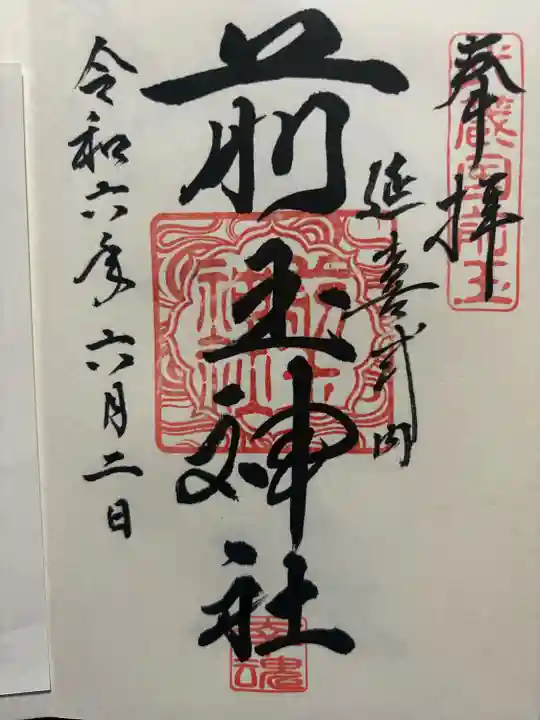 奉拝
武蔵国前玉
延喜式内
前玉神社
前玉神社
幸魂
令和六年六月二日